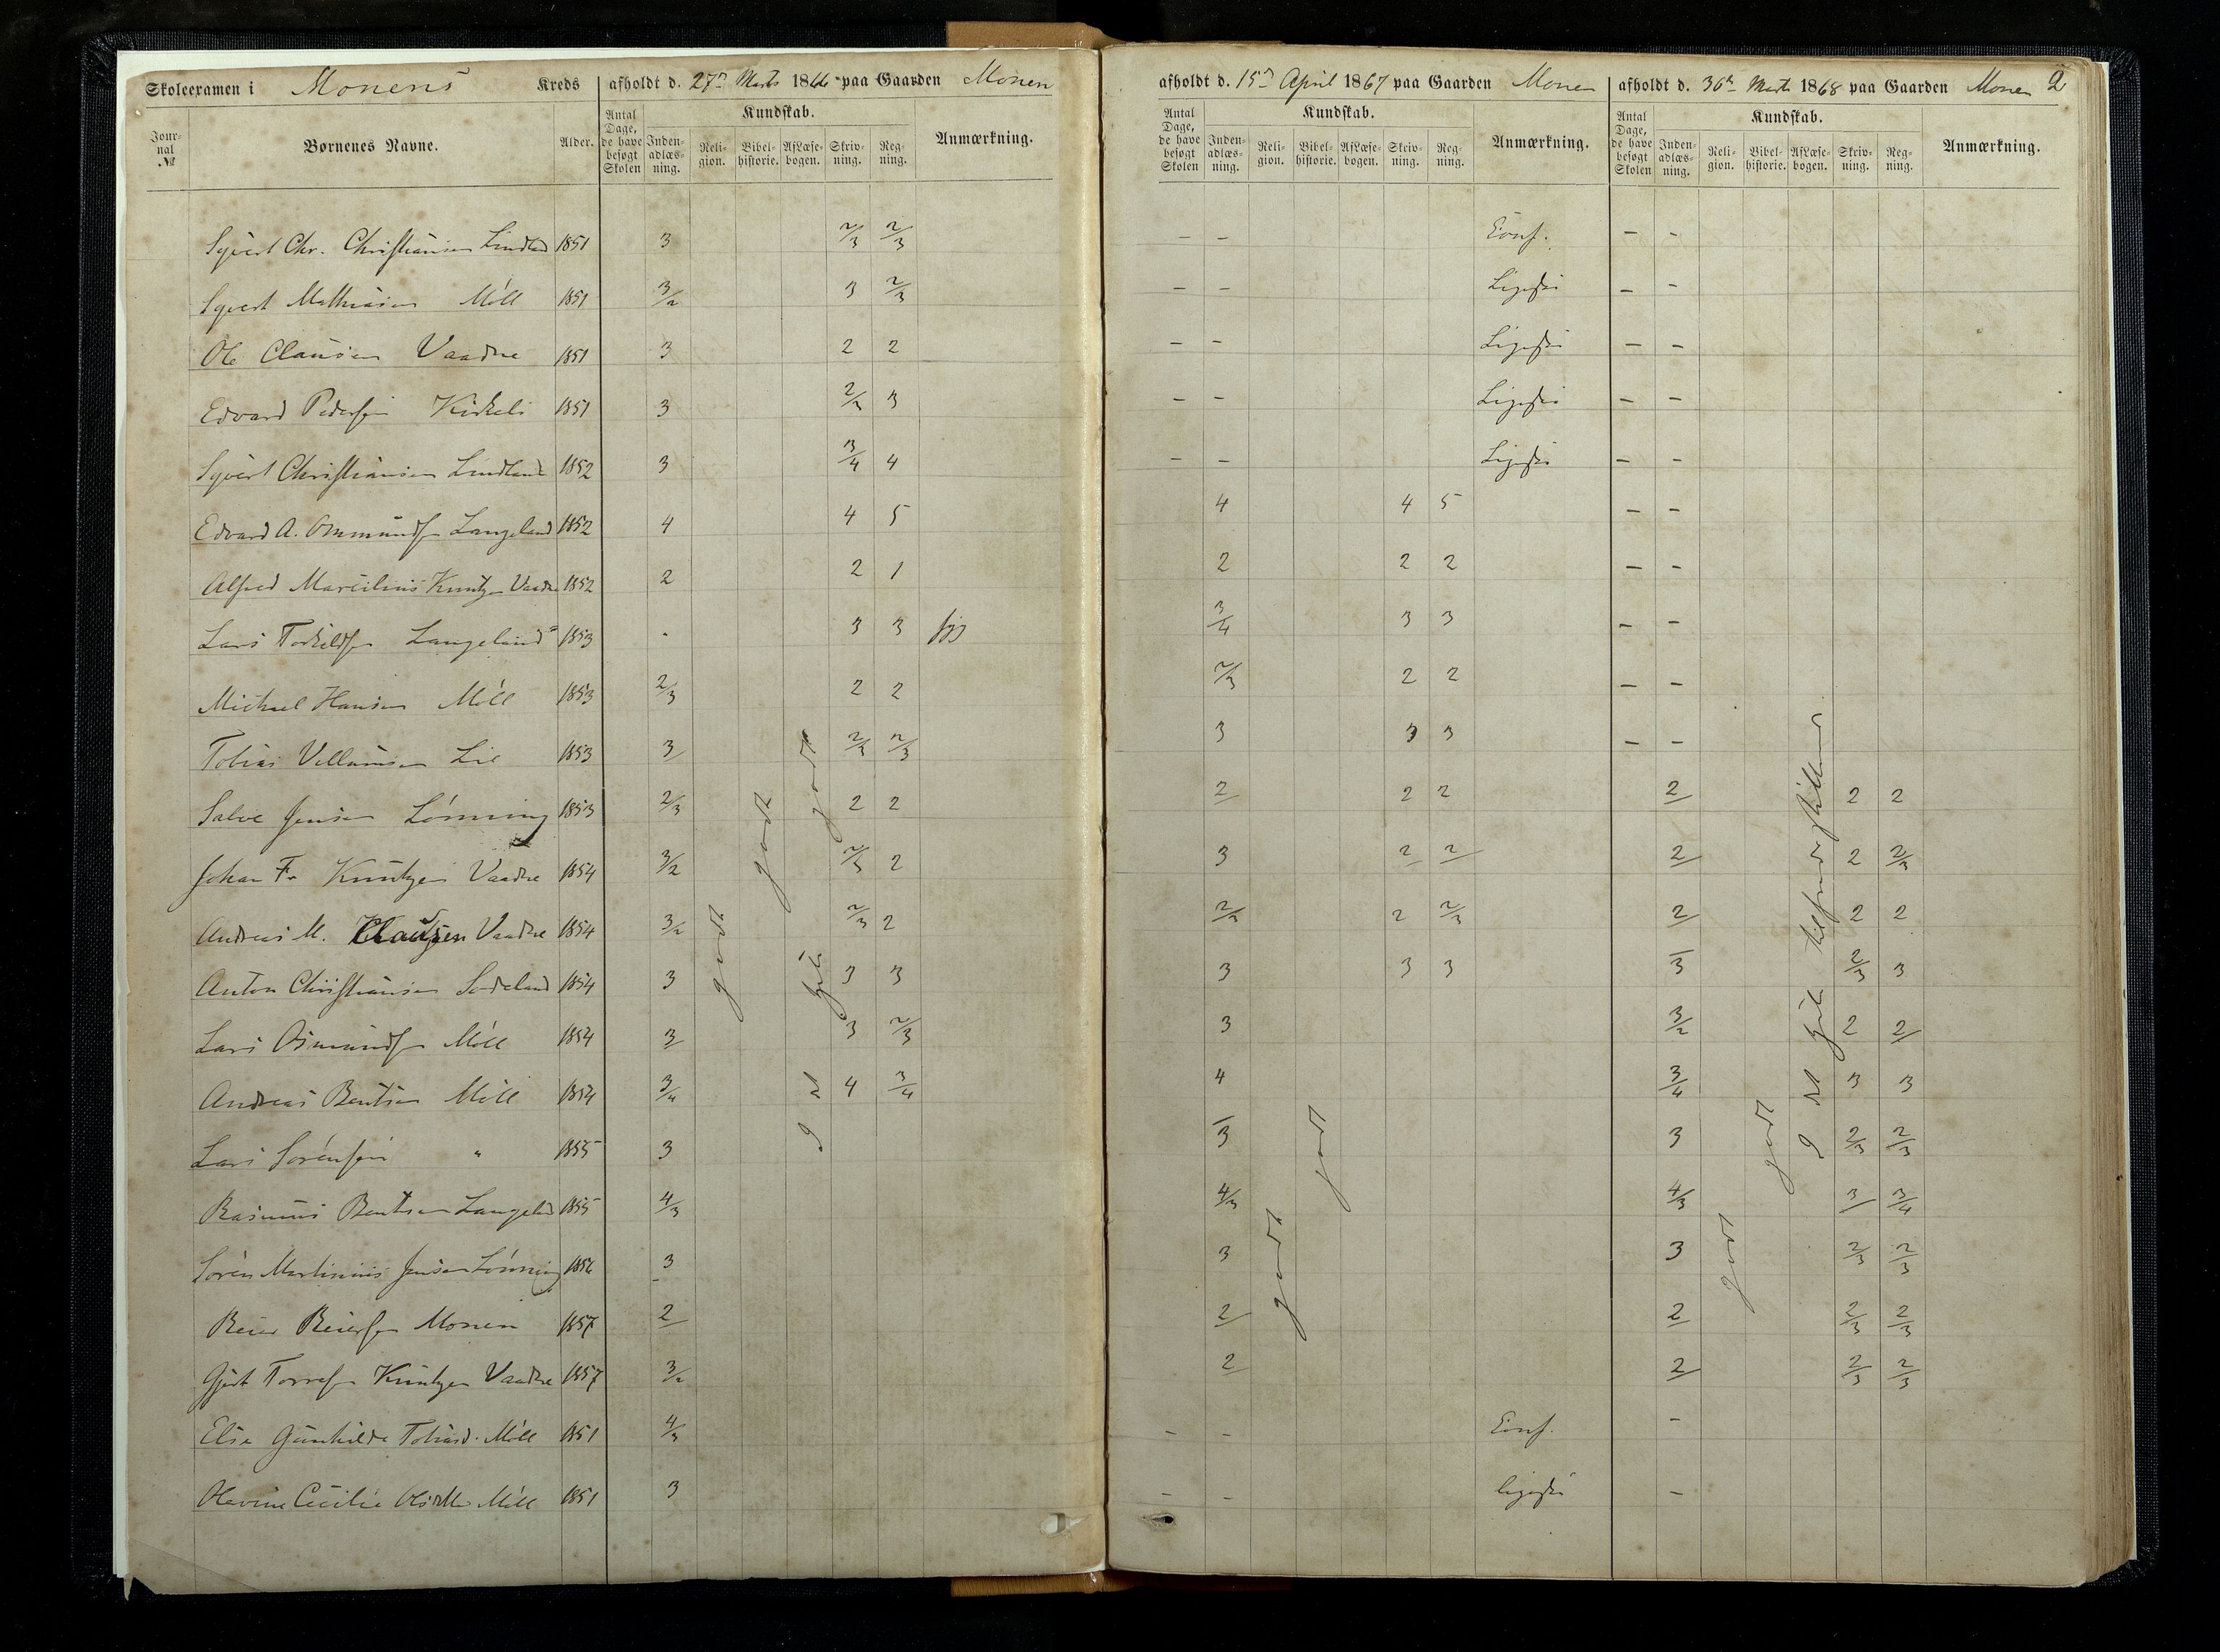 Skoleexamen i Monens Kreds afholdt d. 27de Marts 1866 paa Gaarden Monen
afholdt d. 15de April 1867 paa Gaarden Monen
afholdt d. 30te Marts 1868 paa Gaarden Monen 2
Jour-nal № Børnenes Navne. Alder. Antal Dage, de have besøgt Skolen Kundskab. Inden-adlæs-ning. Reli-gion. Bibel-historie. Af Læse-bogen. Skriv-ning. Reg-ning. Anmærkning.
Antal Dage, de have besøgt Skolen Kundskab. Inden-adlæs-ning. Reli-gion. Bibel-historie. Af Læse-bogen. Skriv-ning. Reg-ning. Anmærkning.
Antal Dage, de have besøgt Skolen Kundskab. Inden-adlæs-ning. Reli-gion. Bibel-historie. Af Læse-bogen. Skriv-ning. Reg-ning. Anmærkning.
Syvert Chr. Christiansen Lindland 1851 3 2/3 2/3 – – Conf. – –
Syvert Mathiasen Möll 1851 3/2 3 2/3 – – Ligesaa – –
Ole Clausen Vaadne 1851 3 2 2 – – Ligesaa – –
Edvard Pedersen Kirkeli 1851 3 2/3 3 – – Ligesaa – –
Syvert Christiansen Lindland 1852 3 3/4 4 – – Ligesaa – –
Edvard A. Ommundsen Langeland 1852 4 4 5 4 4 5 – –
Alfred Marcilius Kuntzen Vaadne 1852 2 2 1 2 2 2 – –
Lars Torkildsen Langeland 1853 - 3 3 syg 3/4 3 3 – –
Michael Hansen Möll 1853 2/3 2 2 2/3 2 2 – –
Tobias Villumsen Lie 1853 3 2/3 2/3 3 3 3 – –
Salve Jensen Lönning 1853 2/3 2 2 2 2 2 2 2 2
Johan Fr. Kuntzen Vaadne 1854 3/2 2/3 2 3 2 2 2 2 2/3
Andreas M. Clausen Vaadne 1854 3/2 2/3 2 2/3 2 2/3 2 2 2
Anton Christiansen Sordeland 1854 3 3 3 3 3 3 3 2/3 3
Lars Osmundsen Möll 1854 3 3 2/3 3 3/2 2 2
Andreas Bentsen Möll 1854 3/4 4 3/4 4 3/4 3 3
Lars Sörensen " 1855 3 3 3 2/3 2/3
Rasmus Bentsen Langeland 1855 4/3 4/3 4/3 3 3/4
Sören Martinius Jensen Lönning 1856 3 3 3 2/3 2/3
Reier Reiersen Monen 1857 2 2 2 2/3 2/3
Gjert Torres Kuntzen Vaadne 1857 3/2 2 2 2/3 2/3
Else Gunhilde Tobiasd. Möll 1851 4/3 – – Conf. –
Olevine Cecilie Olsdtr Möll 1851 3 – – ligesaa –
godt
godt
I det Hele godt
godt
godt
godt
godt
I det Hele tilfredsstillende